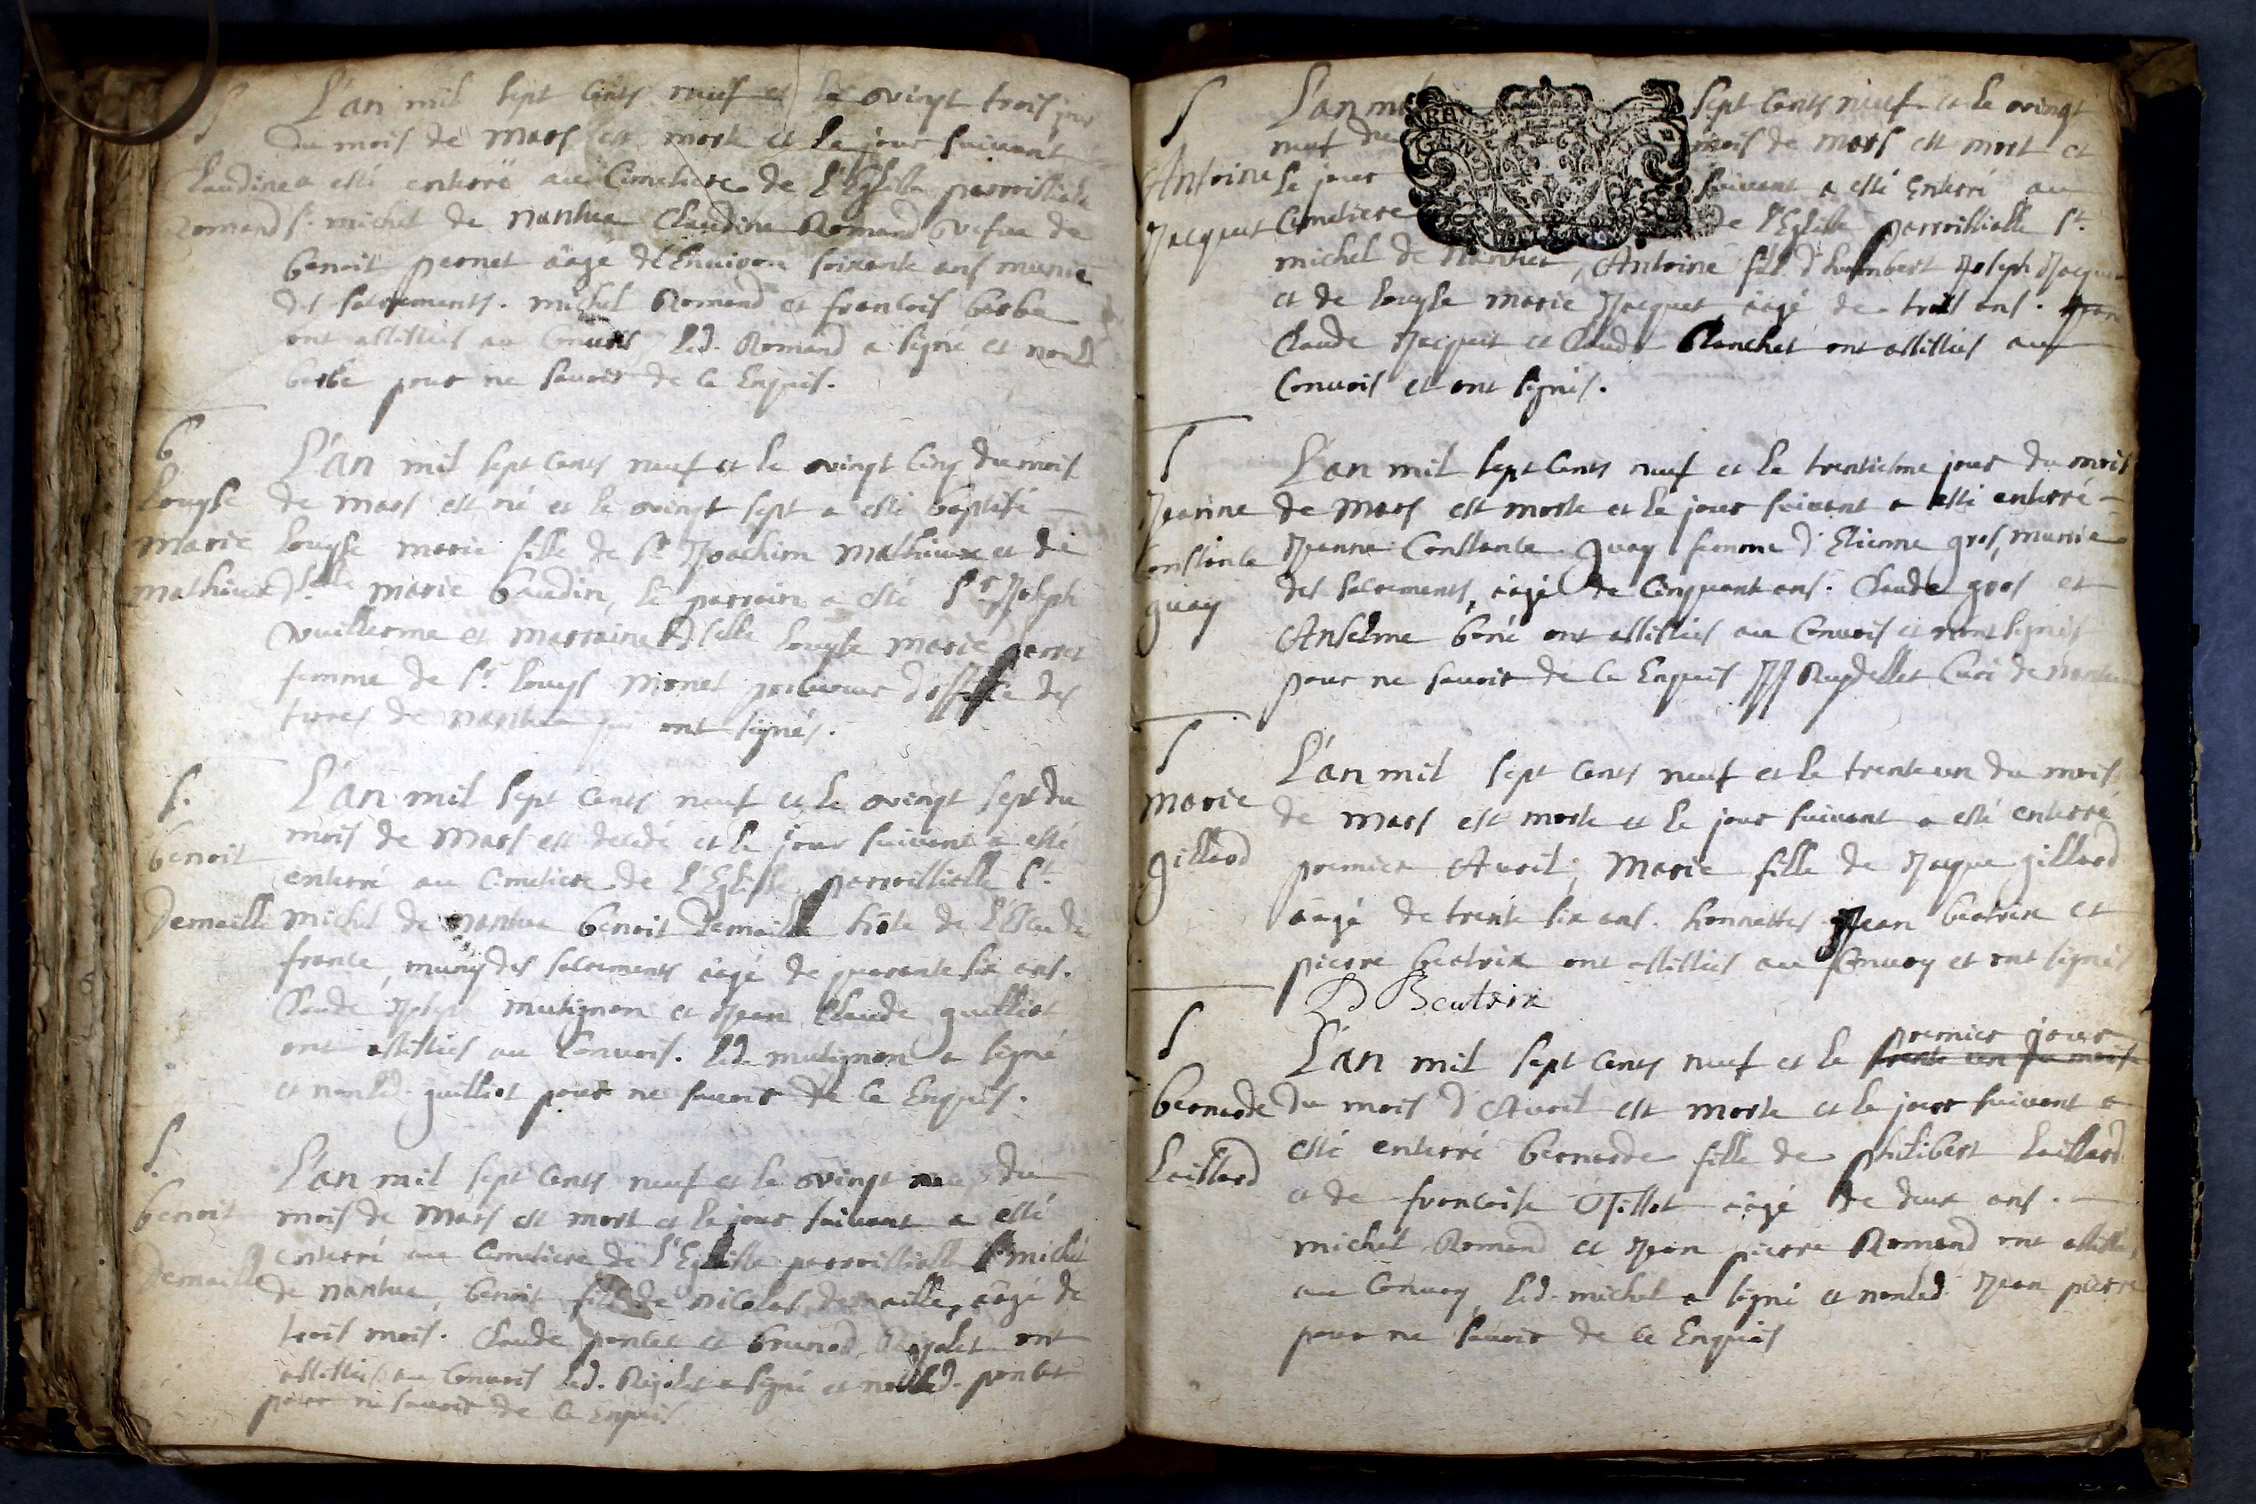 S
L'an mil sept cents neuf et le vingt trois jour
du mois de Mars est morte et le jour suivant
Claudine a esté enterré au Cimetiere de l'Eglise parroissialle
Romand St. michel de Nantua Claudine Romand vefue de
benoit pernet aagé d'Enuiron soixante ans munie
des sacrements. michel Romand et francois berbe
ont assistés au Conuois, led. Romand a signé et non led.
berbe pour ne sauoir de ce Enquis.
b
L'an mil sept cents neuf et le vingt cinq du mois
Louyse de Mars est né et le vingt sept a esté baptisé
Marie Louyse marie fille de Sr. Joachim Mathieux et de
Mathieux Dslle marie baudin, le parrain a esté Sr. Joseph
vuillerme et marraine Dslle Louyse marie
femme de Sr. Louys monet procureur d'office des
terres de Nantua qui ont signés.
S.
L'an mil sept cents neuf et le vingt sept du
mois de Mars est decedé et le jour suivant a esté
benoit
enterré au Cimetiere de l'Eglisse parroissialle St.
Demaille michel de Nantua benoit Demaille hôte de l'Escu de
france, muny des sacrements aagé de quarante six ans.
Claude Joseph mutignon et Jean Claude guilliot
ont assistés au Conuois. led. mutignon a signé
et non led. guilliot pour ne sauoir de ce Enquis.
S.
L'an mil sept cents neuf et le vingt neuf du
benoit mois de Mars est mort et le jour suivant a esté
enterré au Cimetiere de l'Eglisse parroissialle St. michel
Demaille de Nantua, benoit fils de Nicolas demaille, aagé de
trois mois. Claude ponlet et brunod Rigolet ont
assistés au Conuois led. Rigolet a signé et non led. ponlet
pour ne sauoir de ce Enquis
S
L'an mil sept cents neuf et le vingt
neuf du mois de Mars est mort et
Antoine le jour suivant a esté Enterré au
Jacquet Cimetiere de l'Eglisse parroissialle St.
michel de Nantua, Antoine fils d'humbert Joseph Jacquet
et de Louyse marie Jacquet aagé de trois ans. Jean
Claude Jacquet et Claude Blanchet ont assistés au
Conuois et ont signés.
S
L'an mil sept cents neuf et le trentiesme jour du mois
Jeanne de Mars est morte et le jour suivant a esté enterré
Constante Jeanne Constante guay femme d'Etienne gros, munie
des sacrements, aagé de cinquant ans. Claude gros et
guay
Anselme bené ont assistés au Conuois et n'ont signés
pour ne sauoir de ce Enquis JJ Ruydellet Curé de Nantua
S
L'an mil sept cents neuf et le trente un du mois
Marie
de Mars est morte et le jour suivant a esté enterré
gillard premier Auril, Marie fille de Jaque gillard
aagé de trente six ans. honnettes Jean beatrix et
pierre beatrix ont assistés au Conuoy et ont signés
P Beatrix
S
premier jour
L'an mil sept cents neuf et le trente un du mois
bernarde du mois d'Auril est morte et le jour suivant a
esté enterré bernarde fille de philibert Laillard
Laillard
et de francoise Ojillot aagé de deux ans.
michel Romand et Jean pierre Romand ont assistés
au Conuoy, led. michel a signé et non led. Jean pierre
pour ne sauoir de ce Enquis